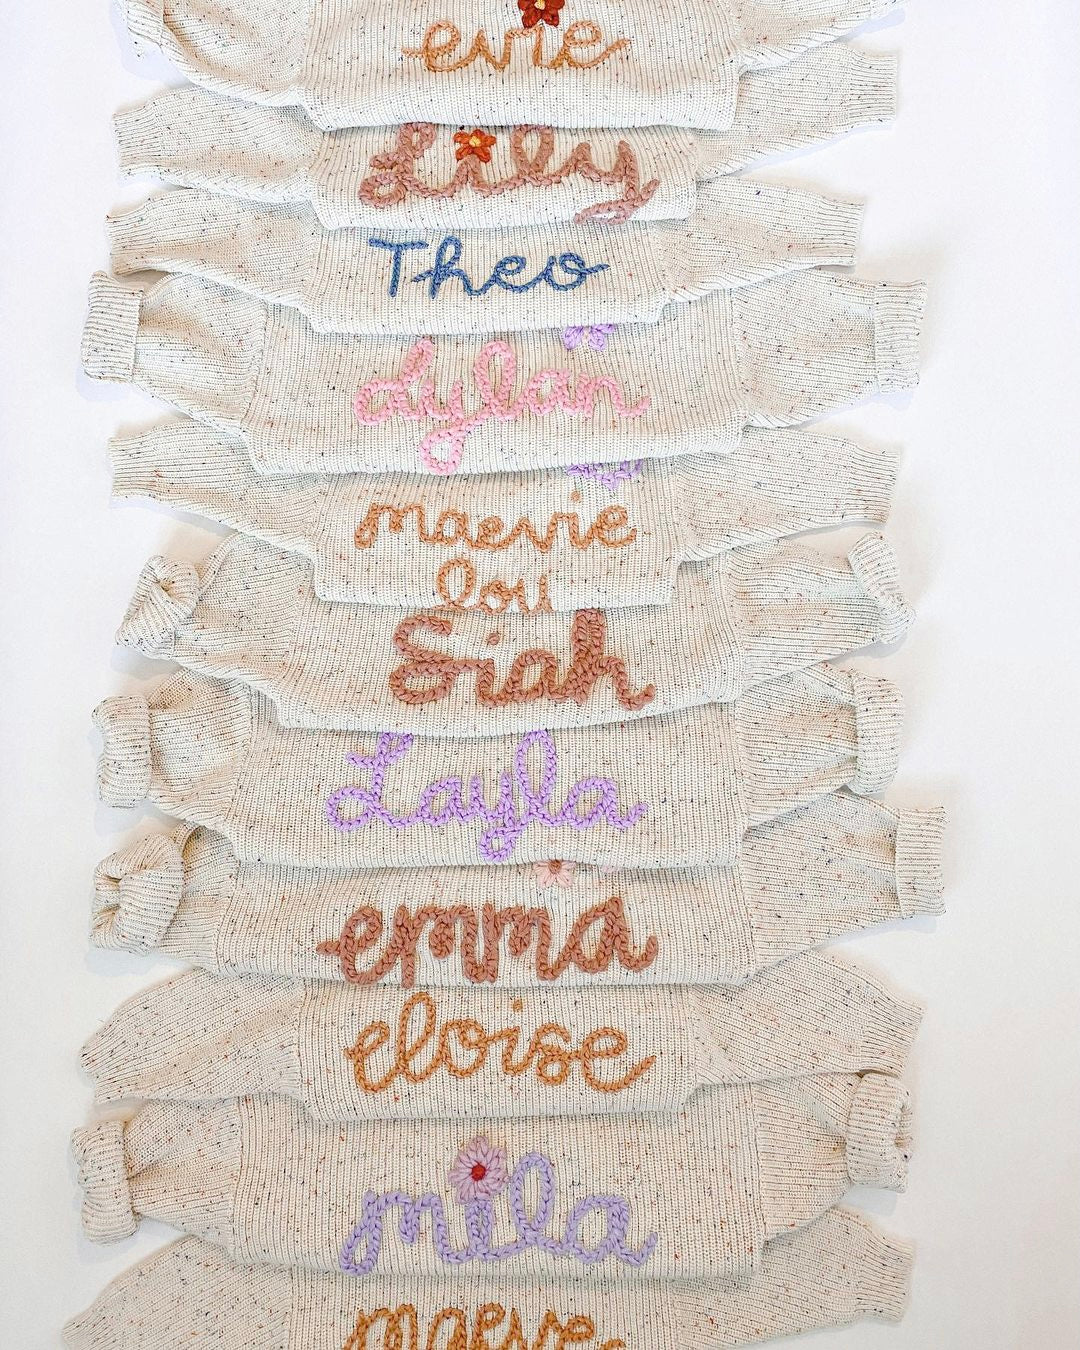 evie
Lily
Theo
dylan
maevie
lou
Siah
Layla
emma
eloise
mila
maeve